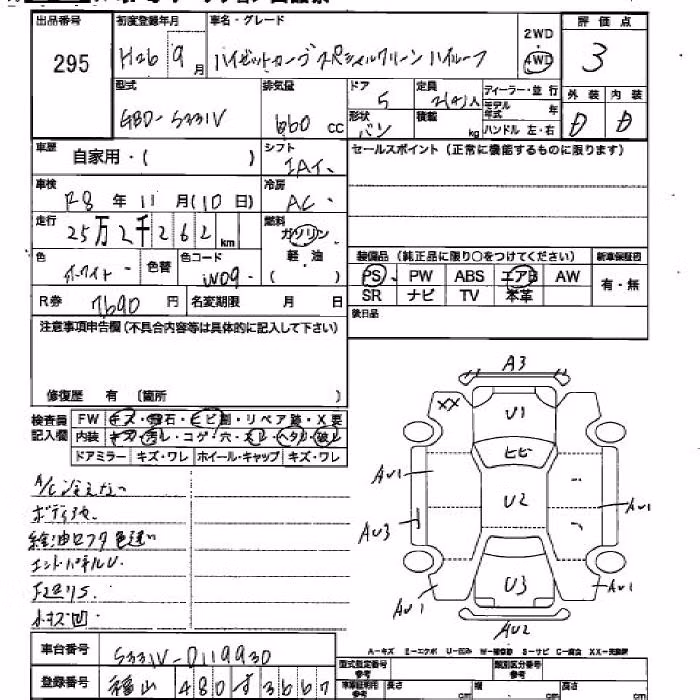 出品番号
295
初度登録年月
H26 9月
車名・グレード
ハイゼットカーゴ スペシャルクリーン ハイルーフ
2WD
4WD
評価点
3
型式
GBD-S331V
排気量
660 cc
ドア
5
形状
バン
定員
2(4)人
積載
kg
ディーラー・並行
モデル年式 年
ハンドル 左・右
外装
D
内装
D
車歴
自家用・( )
シフト
IAT
セールスポイント (正常に機能するものに限ります)
車検
R8 年 11 月 (10 日)
冷房
AC
走行
25万2千262 km
燃料
ガソリン
軽・油
( )
色
ホワイト
色替
色コード
W09
装備品 (純正品に限り〇をつけてください)
新車保証書
PS PW ABS エアB AW
有・無
SR ナビ TV 本革
R券 7690 円
名変期限 月 日
後日品
注意事項申告欄 (不具合内容等は具体的に記入して下さい)
修復歴 有 〔箇所 〕
検査員記入欄
FW キズ・飛石・ヒビ割・リペア跡・X要
内装 キズ・汚レ・コゲ・穴・スレ・ヘタリ・破レ
ドアミラー キズ・ワレ ホイール・キャップ キズ・ワレ
A/C冷えない
給油口フタ色違い
エンドパネルU
小キズ凹
A3
XX
U1
ヒビ
AU1
U2
AU1
AU3
U3
AU1
AU1
AU2
A-キズ E-エクボ U-凹み W-補修跡 S-サビ C-腐食 XX-交換済
車台番号
S331V-0119930
登録番号
福山 480 す 3667
型式指定番号
参考
類別区分番号
参考
車庫証明用
参考
長さ cm
幅 cm
高さ cm